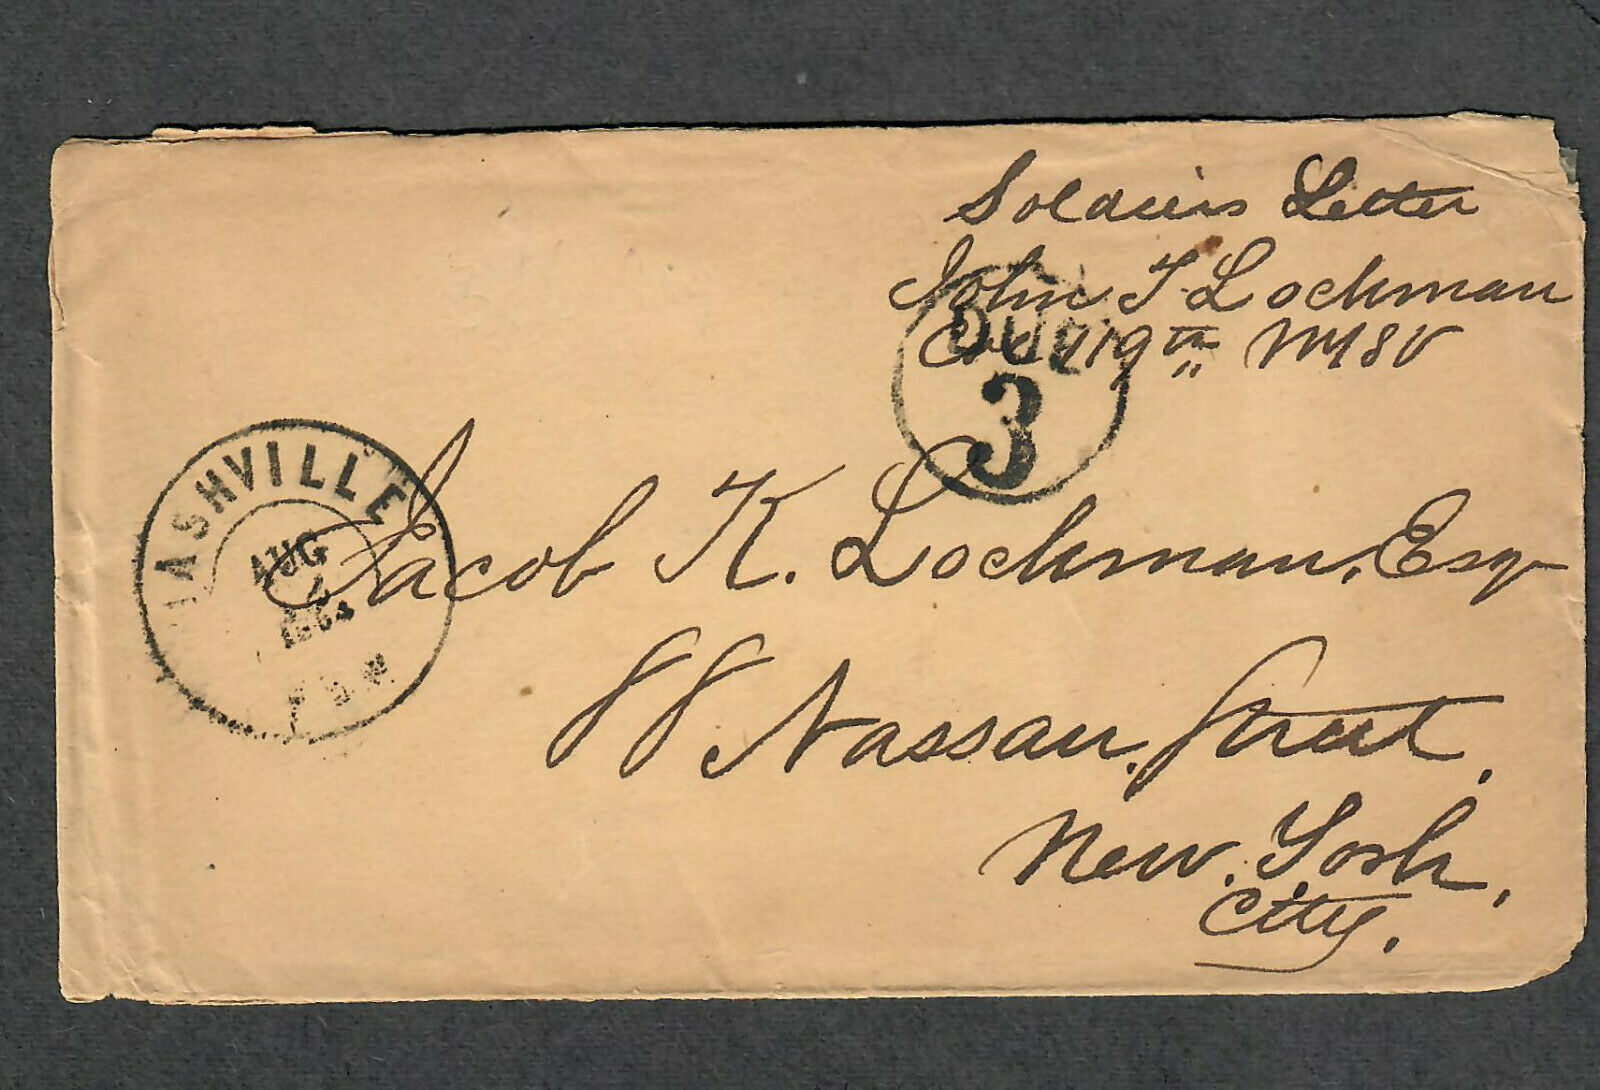 Soldiers Letter
John T Lochman
119th NYSV
DUE
3
NASHVILLE
AUG
1864
Jacob K. Lochman, Esq
88 Nassau. Street.
New. York,
City.